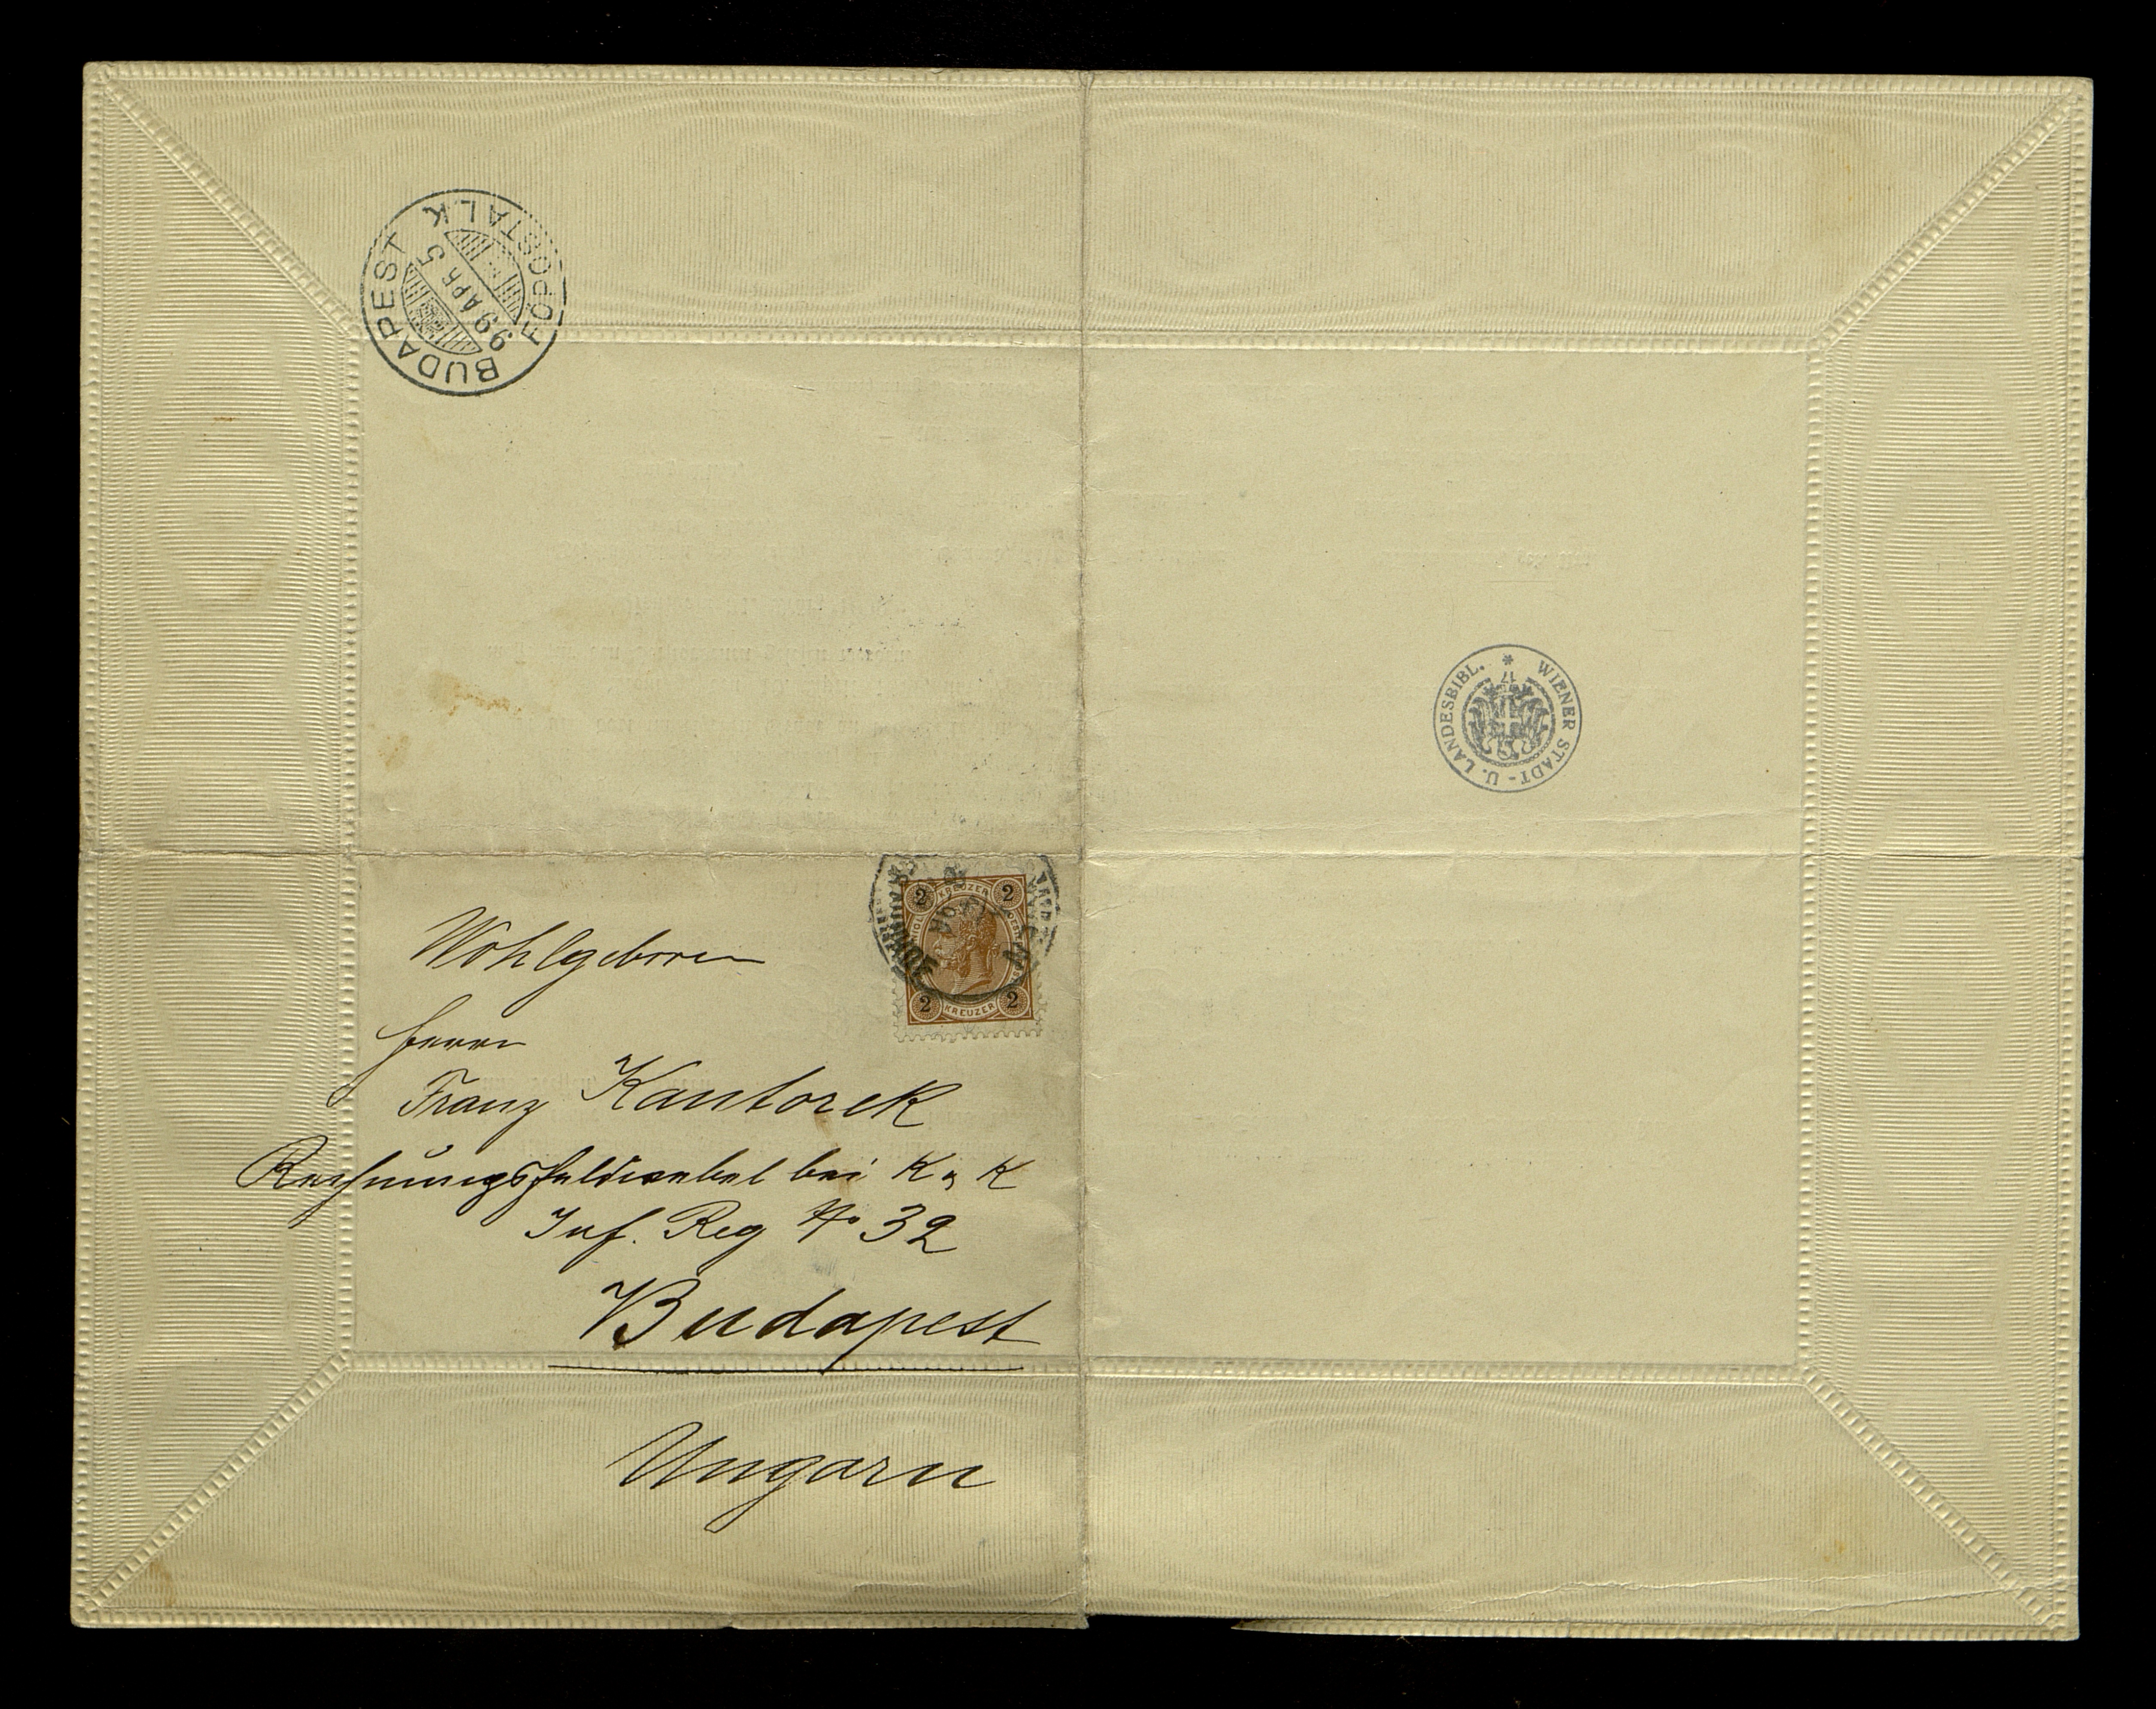 BUDAPEST
FŐPOSTALK
99 APR 5
WIENER STADT- U. LANDESBIBL. *
17
2 KREUZER 2
2 KREUZER 2
Wohlgeboren
Herrn
Franz Kantorek
Rechnungsfeldwebel bei K u K
Inf. Reg No 32
Budapest
Ungarn